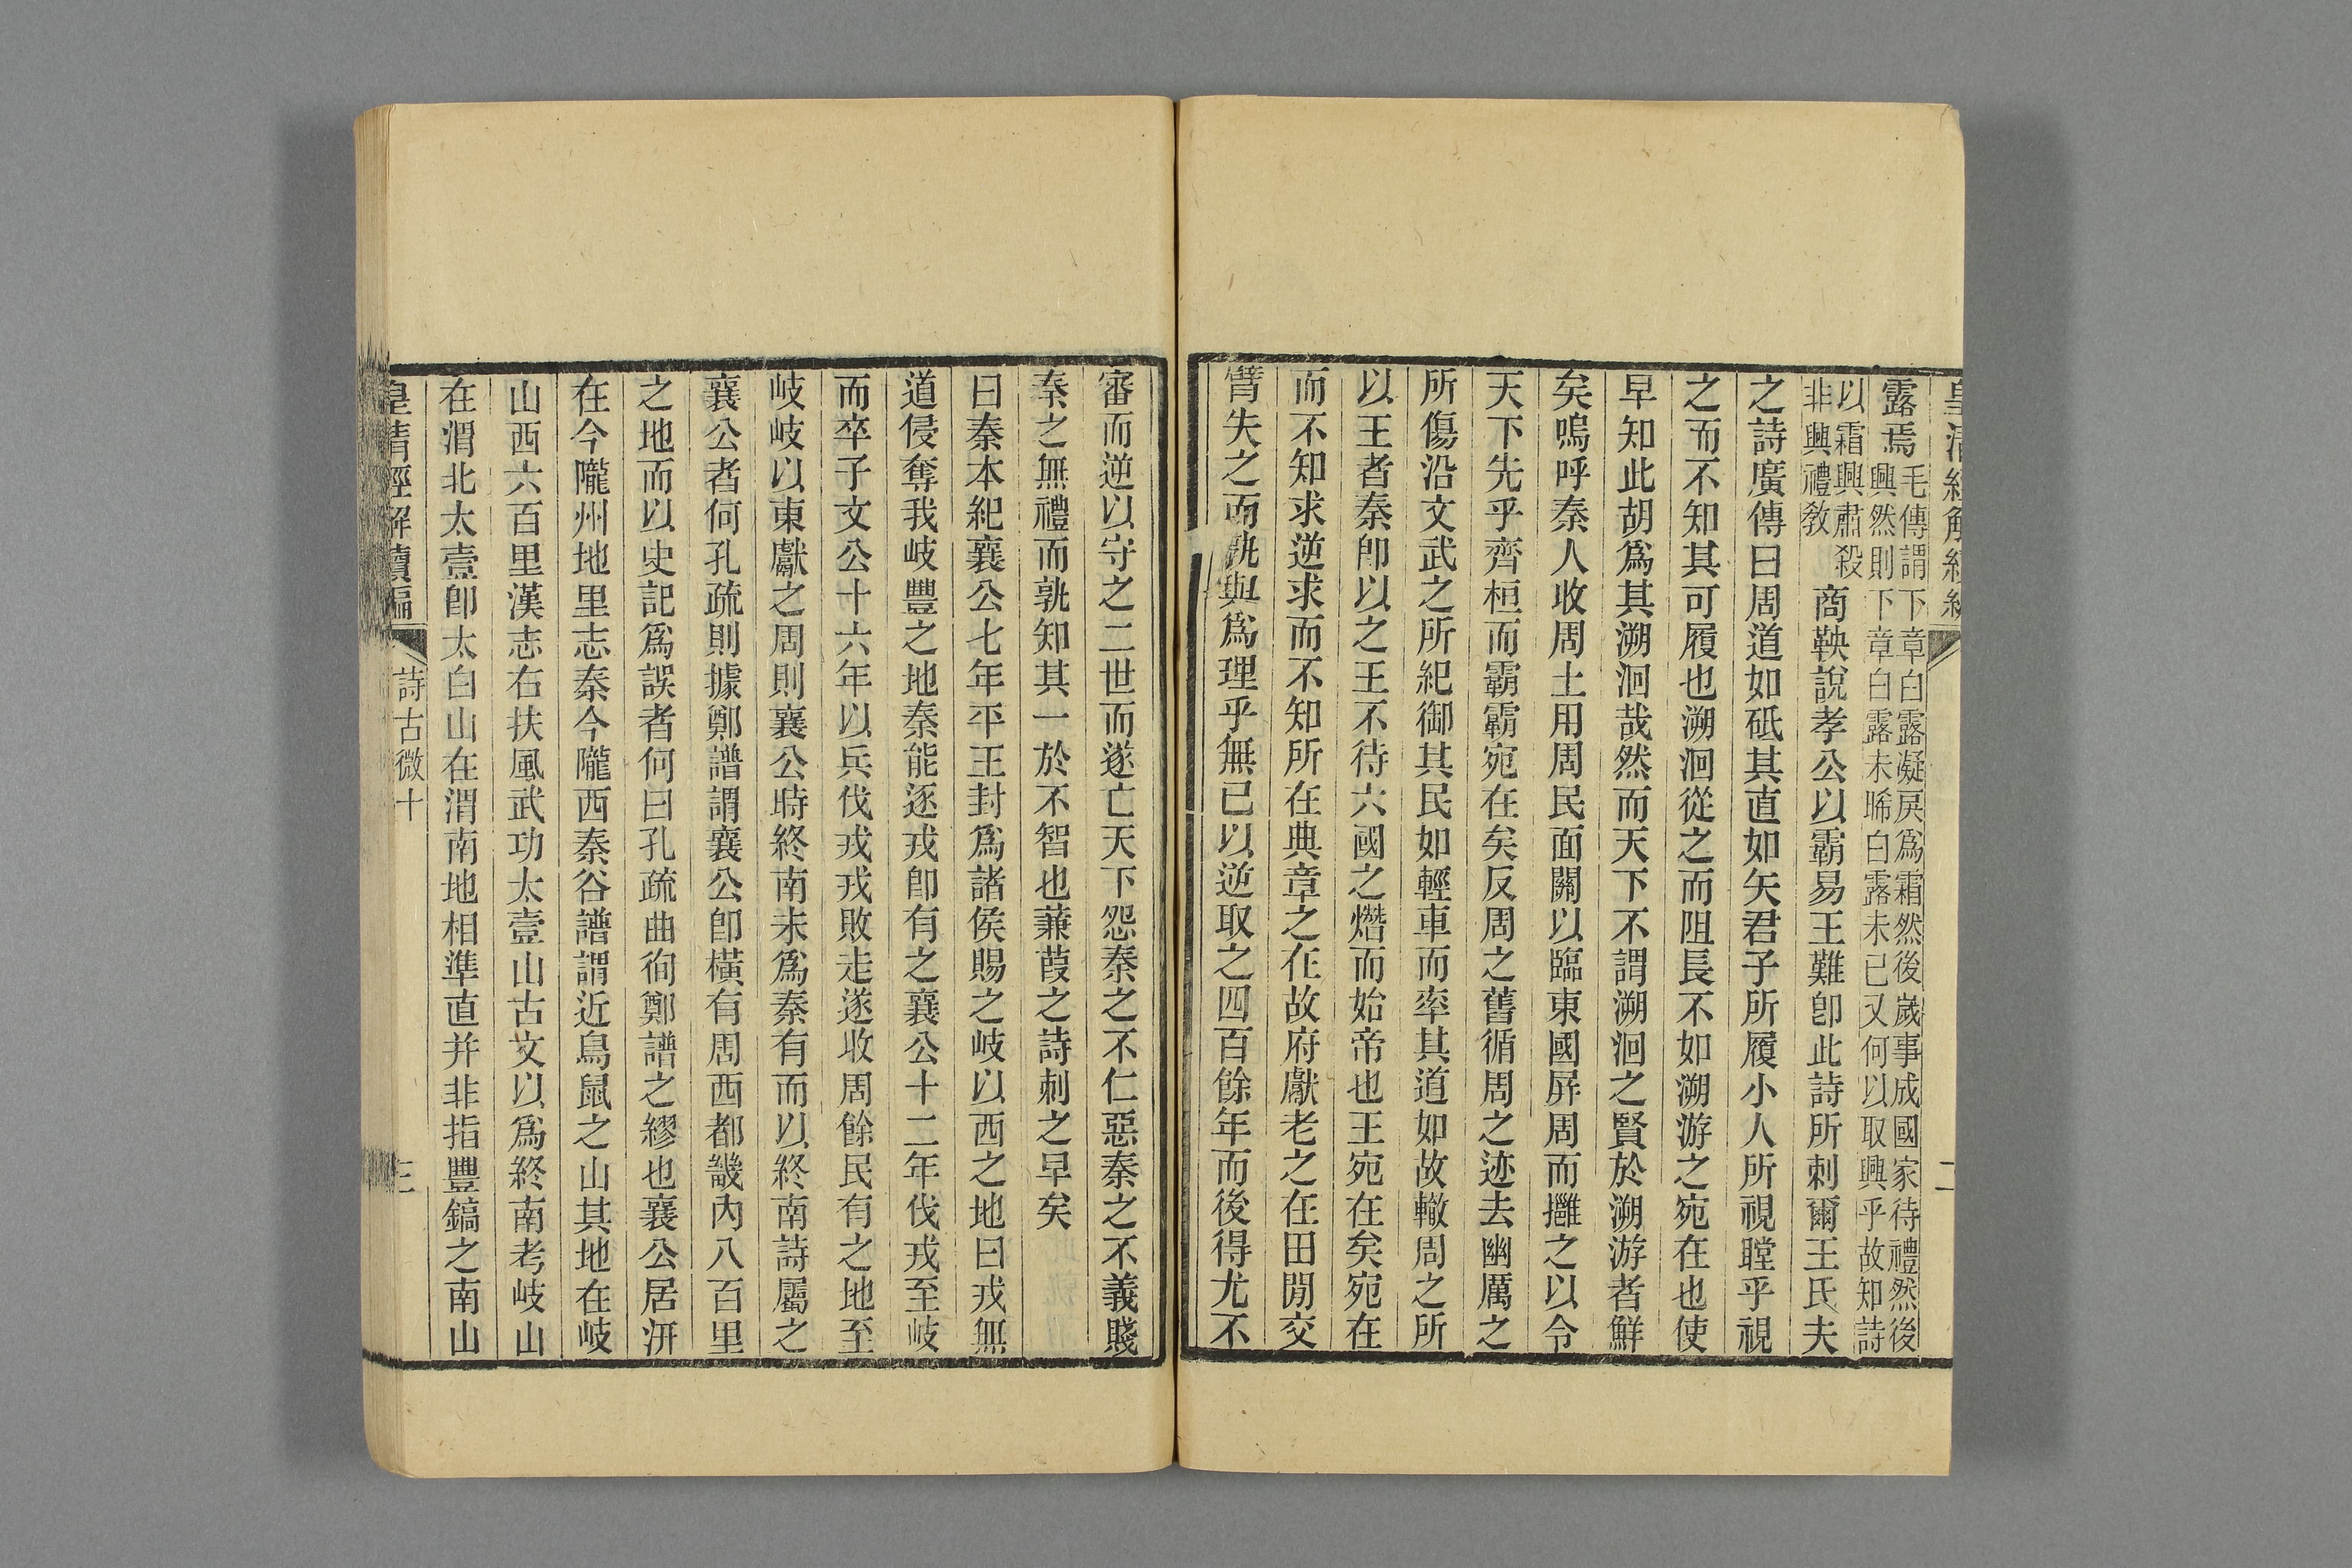 皇清經解續編
二
露焉毛傳謂下章白露凝戾爲霜然後歲事成國家待禮然後
興然則下章白露未晞白露未已又何以取興乎故知詩
以霜興肅殺
非興禮教
商鞅說孝公以霸易王難卽此詩所刺爾王氏夫
之詩廣傳曰周道如砥其直如矢君子所履小人所視瞠乎視
之而不知其可履也溯洄從之而阻長不如溯游之宛在也使
早知此胡爲其溯洄哉然而天下不謂溯洄之賢於溯游者鮮
矣嗚呼秦人收周土用周民面關以臨東國屛周而攡之以令
天下先乎齊桓而霸霸宛在矣反周之舊循周之迹去幽厲之
所傷沿文武之所紀御其民如輕車而率其道如故轍周之所
以王者秦卽以之王不待六國之熸而始帝也王宛在矣宛在
而不知求逆求而不知所在典章之在故府獻老之在田閒交
臂失之而孰與爲理乎無已以逆取之四百餘年而後得尤不
審而逆以守之二世而遂亡天下怨秦之不仁惡秦之不義賤
秦之無禮而孰知其一於不智也蒹葭之詩刺之早矣
曰秦本紀襄公七年平王封爲諸侯賜之岐以西之地曰戎無
道侵奪我岐豐之地秦能逐戎卽有之襄公十二年伐戎至岐
而卒子文公十六年以兵伐戎戎敗走遂收周餘民有之地至
岐岐以東獻之周則襄公時終南未爲秦有而以終南詩屬之
襄公者何孔疏則據鄭譜謂襄公卽橫有周西都畿內八百里
之地而以史記爲誤者何曰孔疏曲徇鄭譜之繆也襄公居汧
在今隴州地里志秦今隴西秦谷譜謂近鳥鼠之山其地在岐
山西六百里漢志右扶風武功太壹山古文以爲終南考岐山
在渭北太壹卽太白山在渭南地相準直并非指豐鎬之南山
皇清經解續編
詩古微十
三